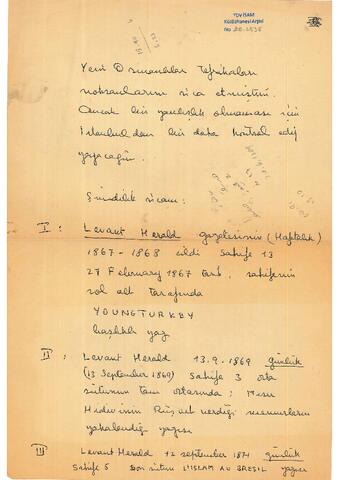 TDV İSAM
Kütüphanesi Arşivi
No
Yeni Osmanlılar Tefrikaları
noksanlarını rica etmiştim.
Ancak bir yanlışlık olmaması için
İstanbul dan bir daha kontrol edip
yazacağım.
Şimdilik ricam:
I : Levant Herald gazetesinin (Haftalık)
1867-1868 cildi Sahife 13
27 February 1867 tarih, sahifenin
sol alt tarafında
YOUNG TURKEY
başlıklı yazı
II : Levant Herald 13.9.1869 günlük
(13 September 1869) Sahife 3 orta
sütunun tam ortasında : Mısır
Hidivinin Rüşvet verdiği memurların
yakalandığı yazısı
III Levant Herald 12 september 1871 günlük
Sahife 5 Son sütun L'ISLAM AU BRESIL yazısı